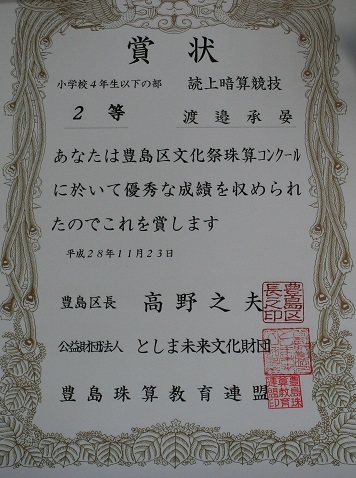 賞状
小学校4年生以下の部 読上暗算競技
2等 渡邉承晏
あなたは豊島区文化祭珠算コンクール
に於いて優秀な成績を収められ
たのでこれを賞します
平成28年11月23日
豊島区長 高野之夫
公益財団法人 としま未来文化財団
豊島珠算教育連盟
豊島区長之印
豊島珠算教育連盟印